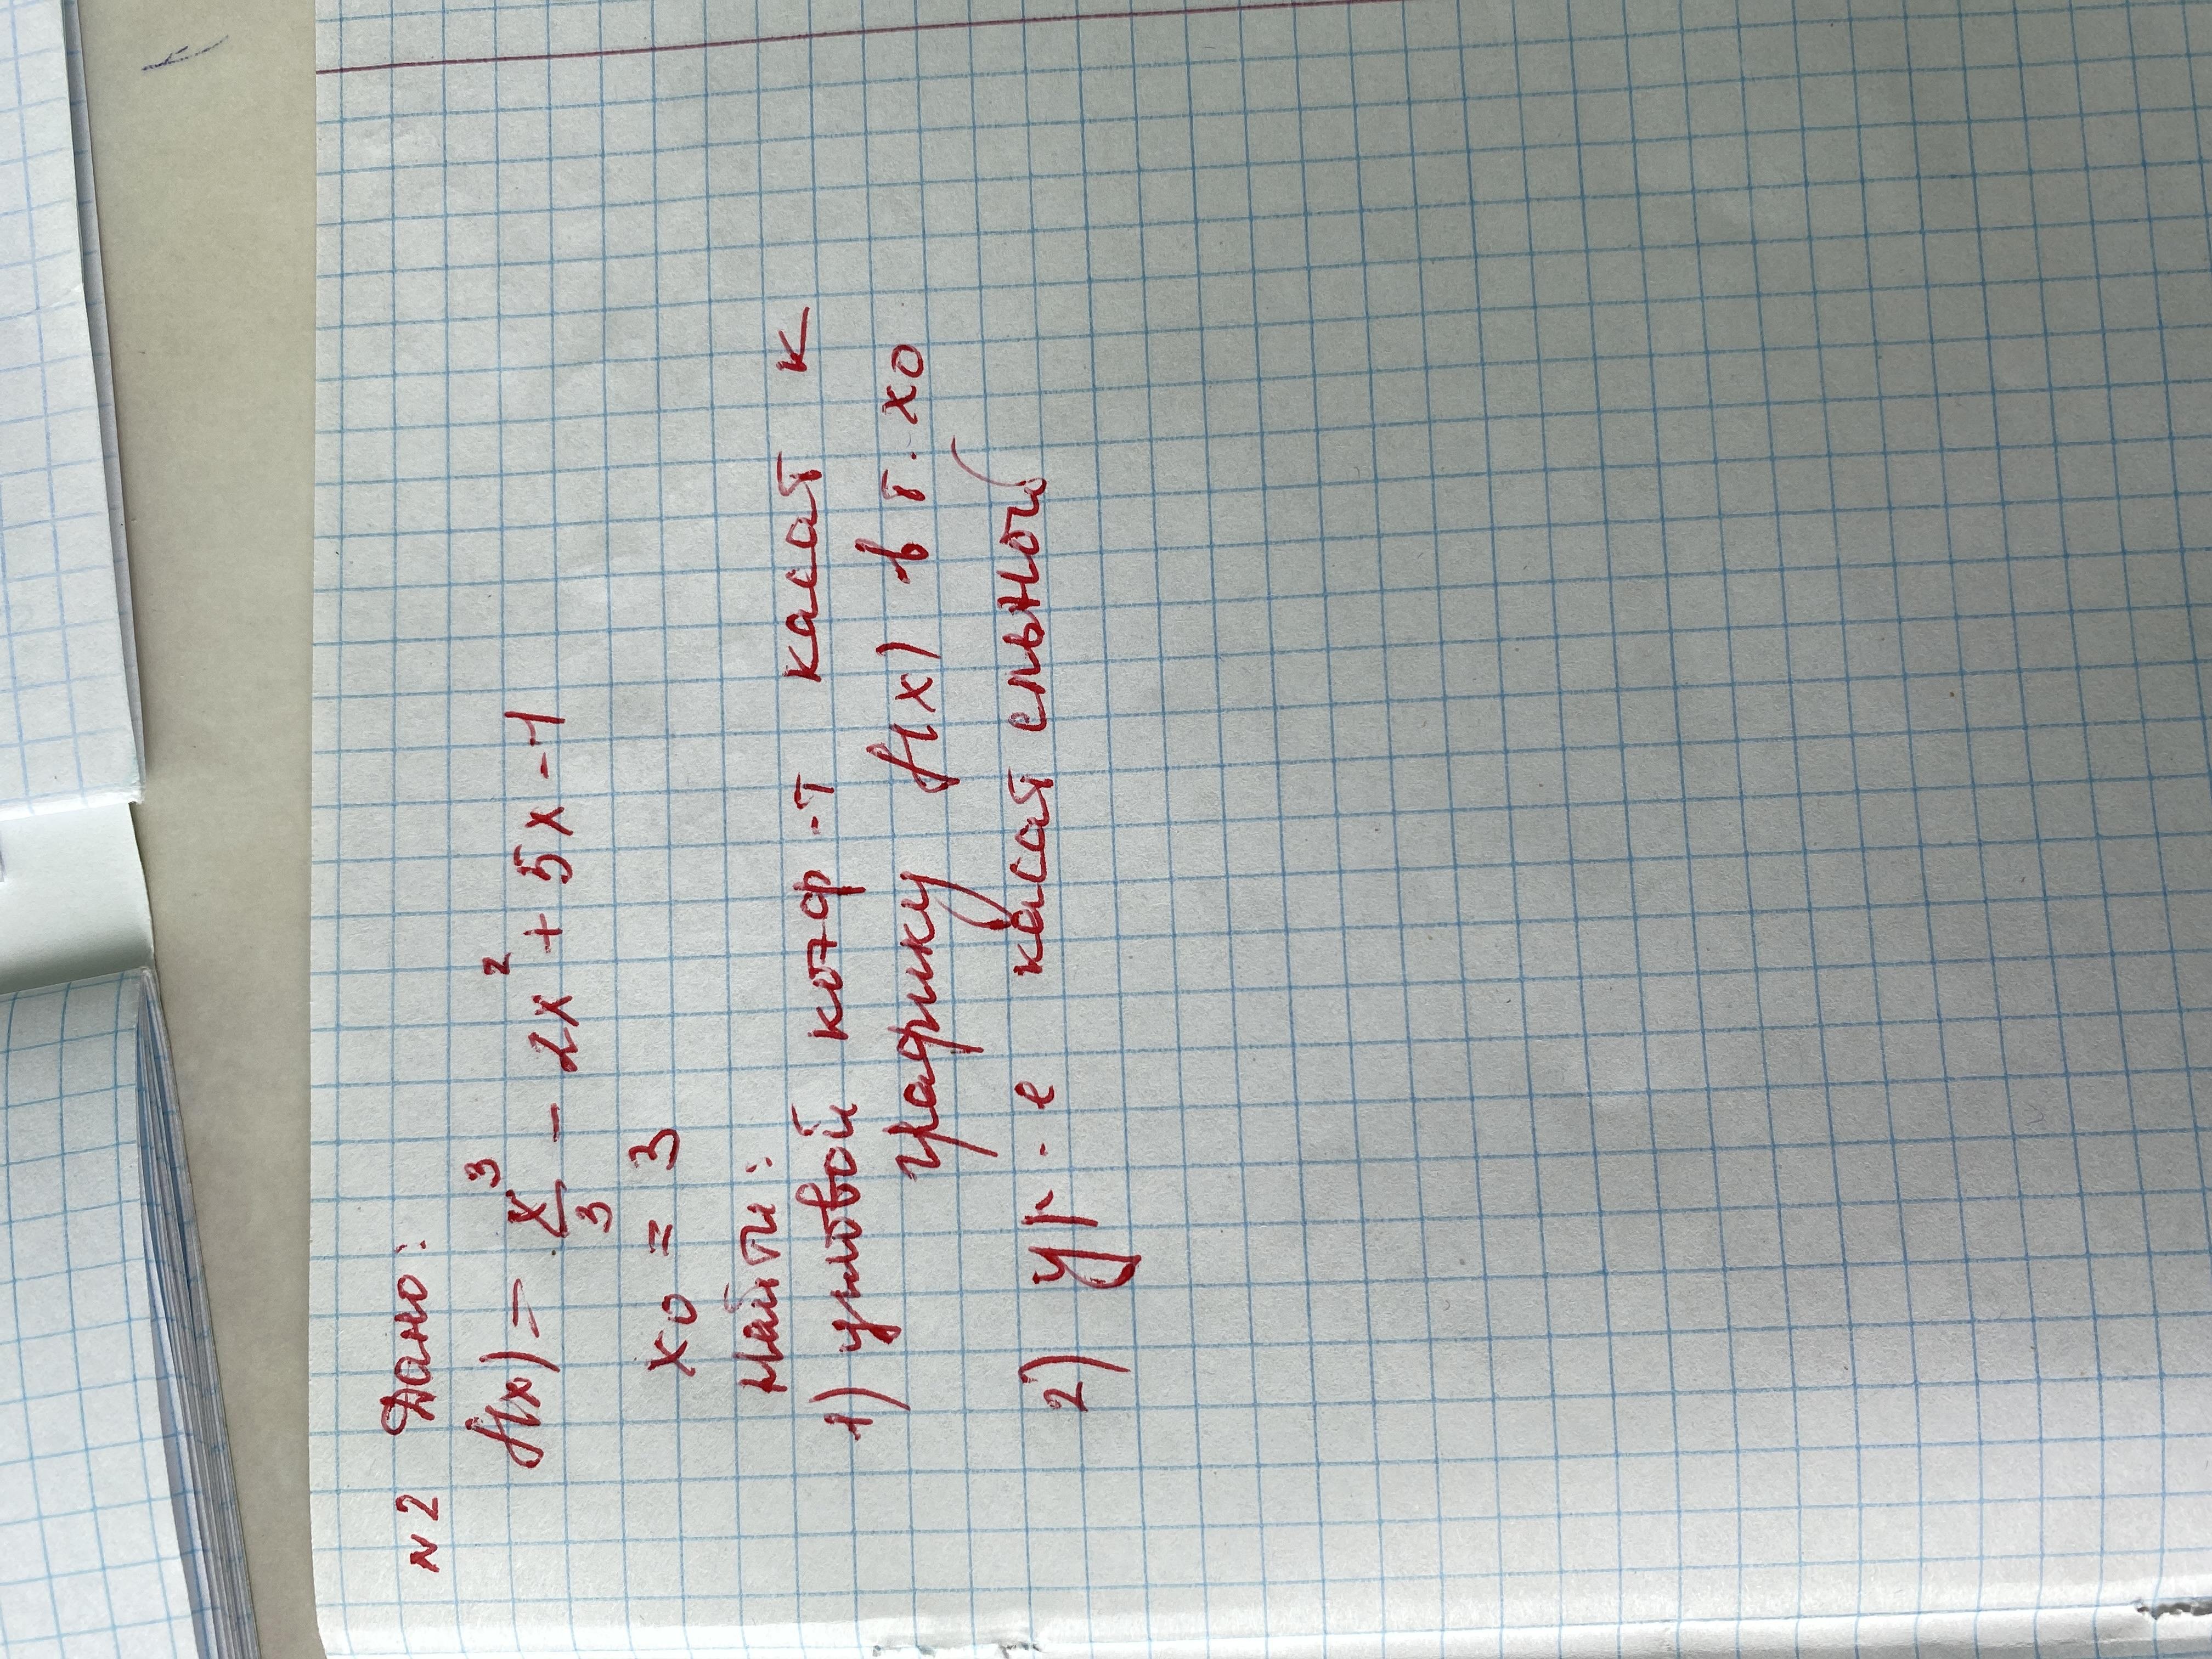 N2 Дано:
f(x) = x³/3 - 2x² + 5x - 1
x0 = 3
Найти:
1) угловой коэф-т касат к
графику f(x) в т. x0
2) ур-е касательной